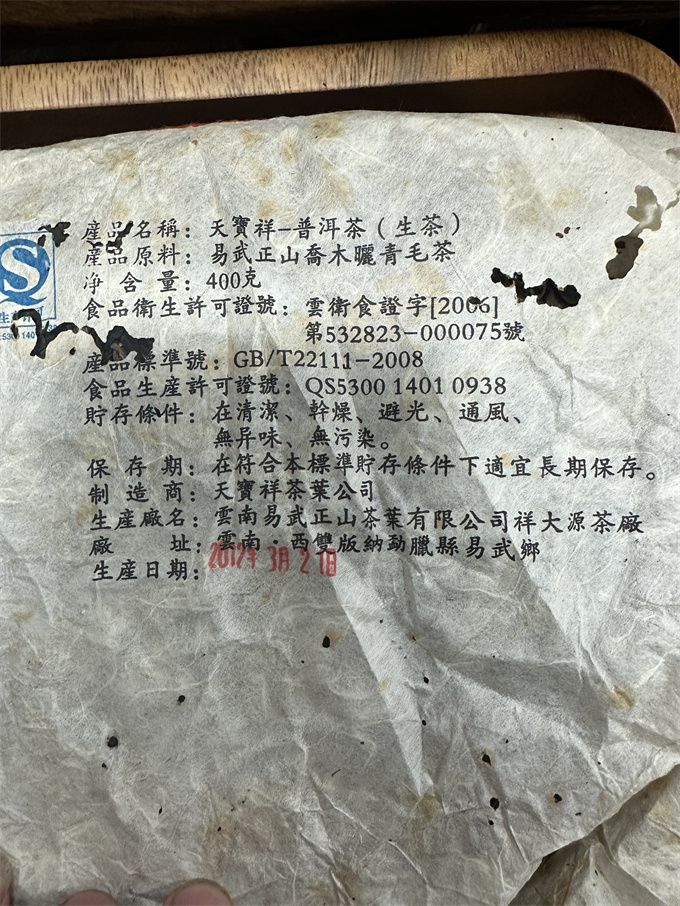 產品名稱：天寶祥-普洱茶（生茶）
產品原料：易武正山喬木曬青毛茶
净含量：400克
食品衛生許可證號：雲衛食證字[2006]
第532823-000075號
產品標準號：GB/T22111-2008
食品生産許可證號：QS5300 1401 0938
貯存條件：在清潔、幹燥、避光、通風、
無异味、無污染。
保存期：在符合本標準貯存條件下適宜長期保存。
制造商：天寶祥茶葉公司
生産廠名：雲南易武正山茶葉有限公司祥大源茶廠
廠址：雲南·西雙版納勐臘縣易武鄉
生産日期：2012年3月21日